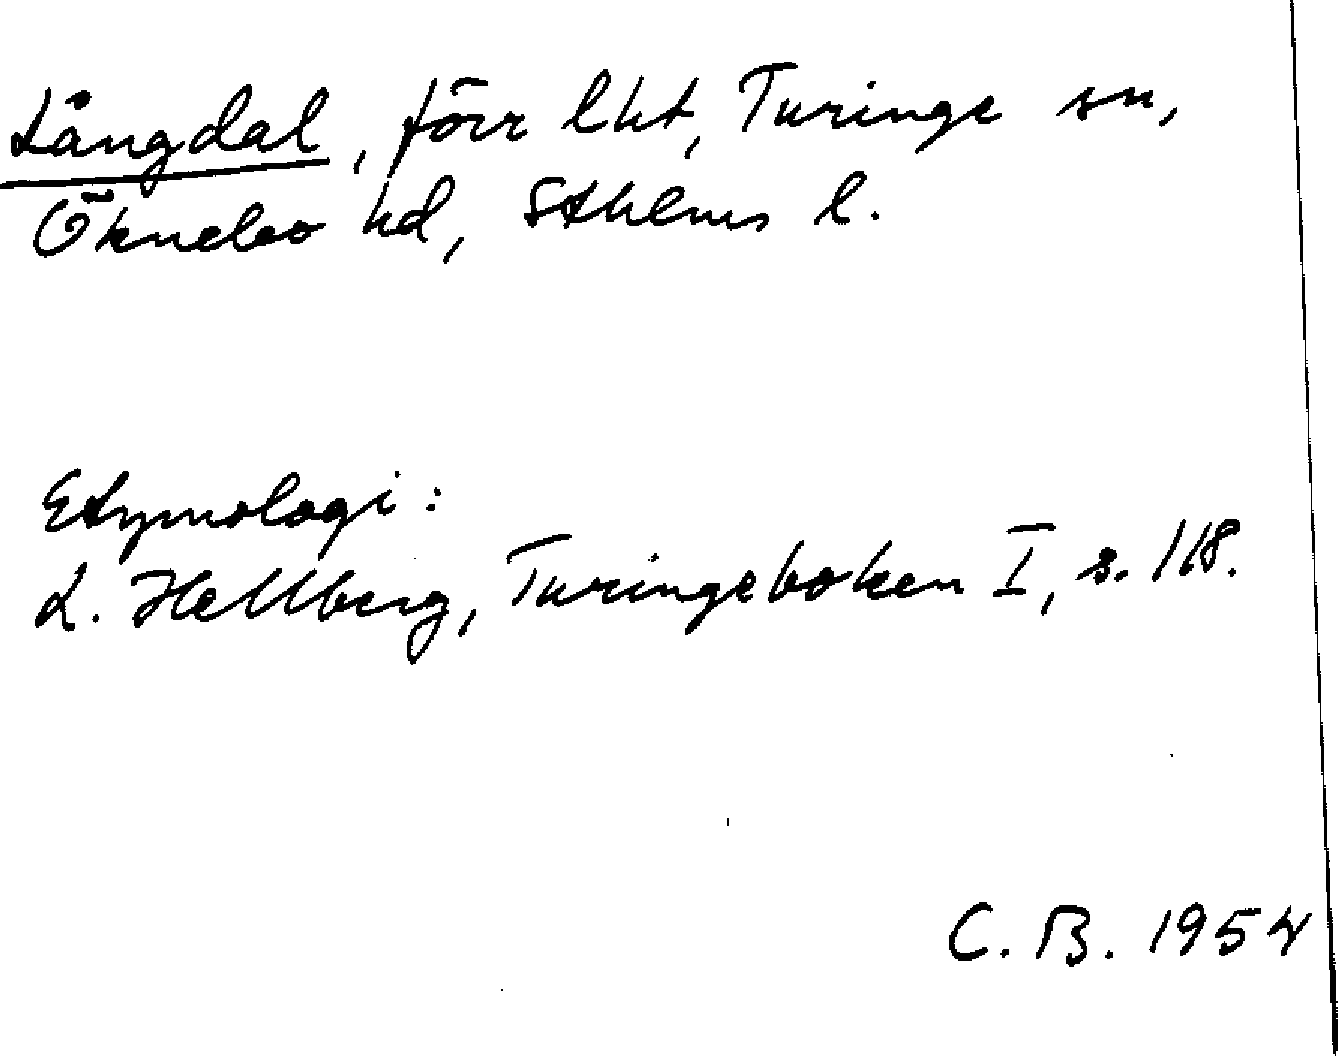 Långdal, förr lht, Turinge sn,
Öknebo hd, Sthlms l.
Etymologi:
L. Hellberg, Turingeboken I, s. 118.
C. B. 1954